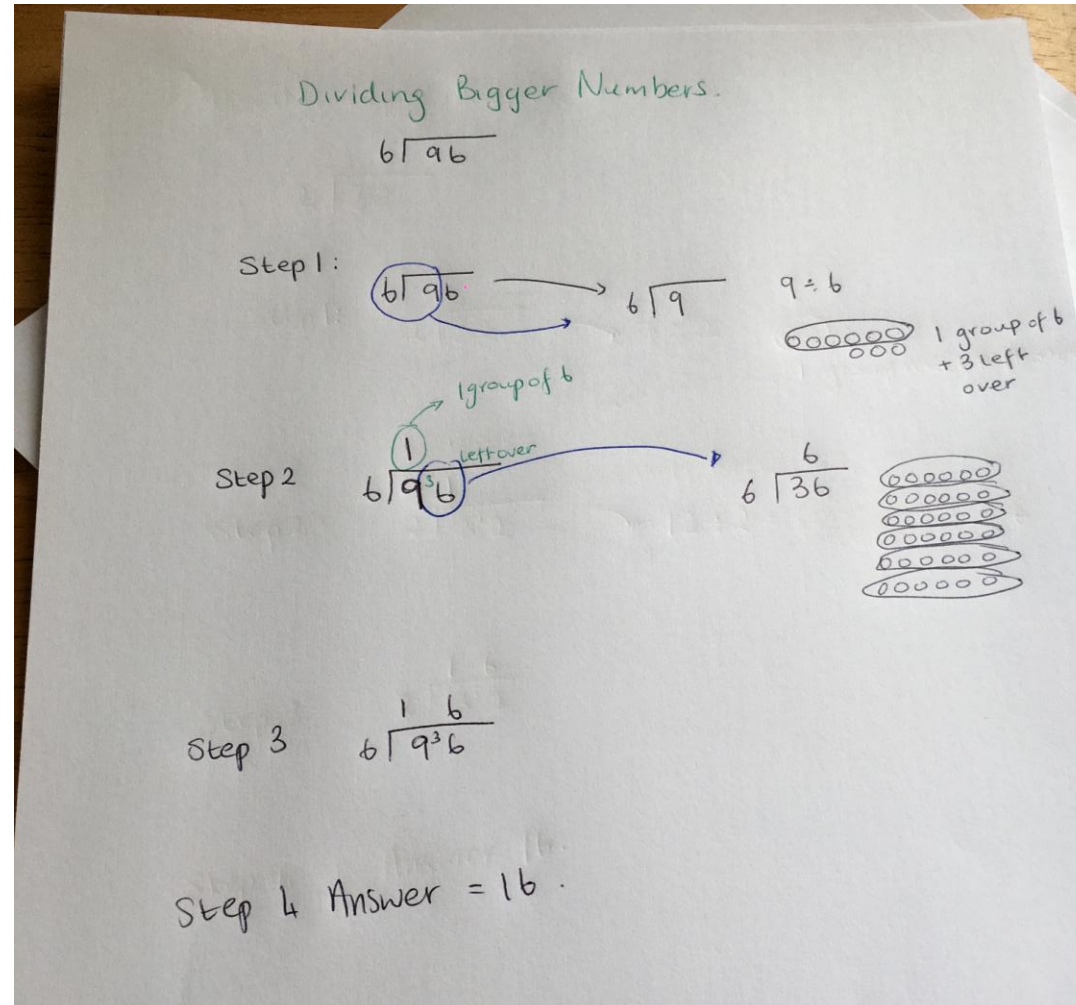 Dividing Bigger Numbers.
6 96
Step 1:
6 96
6 9
9 ÷ 6
1 group of 6
+ 3 left
over
1 group of 6
1 leftover
Step 2
6 9 3 6
6
6 36
1 6
Step 3
6 9 3 6
Step 4 Answer = 16.